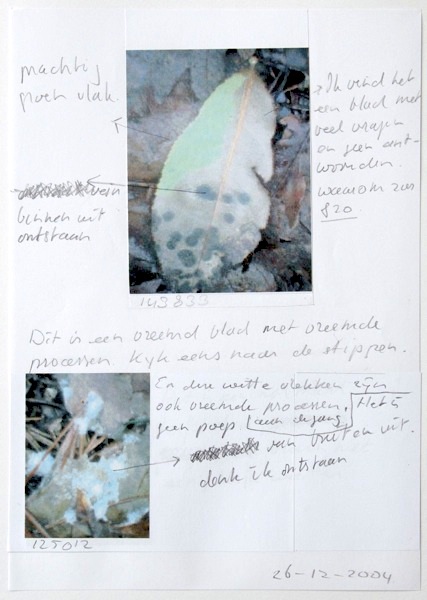 machtig
groen vlak.
van
binnen uit
ontstaan
Ik vind het
een blad met
veel vragen
en geen ant-
woorden.
waarom zus
& zo.
143833
Dit is een vreemd blad met vreemde
processen. Kijk eens naar de stippen.
En deze witte vlekken zijn
ook vreemde processen. Het is
geen poep
van buiten uit.
denk ik ontstaan
125012
26-12-2004